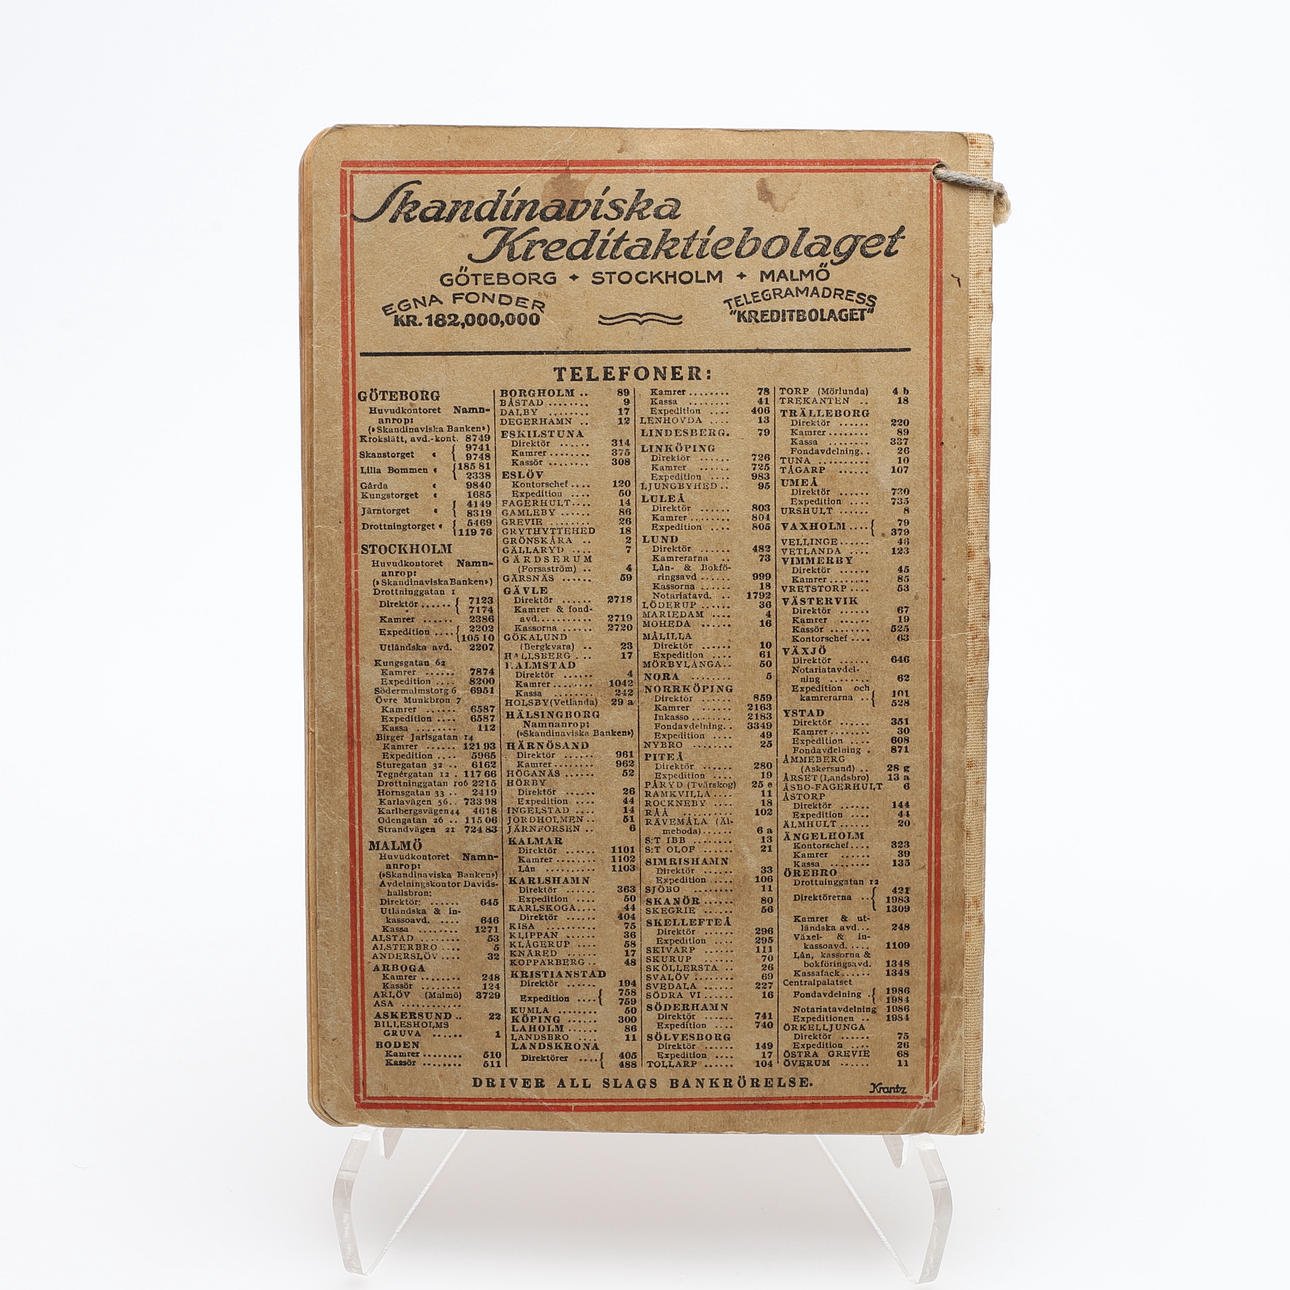 Skandinaviska
Kreditaktiebolaget
GÖTEBORG + STOCKHOLM + MALMÖ
EGNA FONDER
KR. 182,000,000
TELEGRAMADRESS
"KREDITBOLAGET"
TELEFONER:
GÖTEBORG
Huvudkontoret Namn-
anrop:
(»Skandinaviska Banken»)
Krokslätt, avd.-kont. 8749
Skanstorget { 9741
9748
Lilla Bommen { 185 81
2338
Gårda 9840
Kungstorget 1685
Järntorget { 4149
8319
Drottningtorget { 5469
119 76
STOCKHOLM
Huvudkontoret Namn-
anrop:
(»SkandinaviskaBanken»)
Drottninggatan 1
Direktör ...... { 7123
7174
Kamrer ...... 2386
Expedition .... { 2202
105 10
Utländska avd. 2207
Kungsgatan 62
Kamrer ...... 7874
Expedition .... 8200
Södermalmstorg 6 6951
Övre Munkbron 7
Kamrer ...... 6587
Expedition .... 6587
Kassa ........ 112
Birger Jarlsgatan 14
Kamrer ...... 121 93
Expedition .... 5965
Sturegatan 32 .. 6162
Tegnérgatan 12 . 117 66
Drottninggatan 106 2215
Hornsgatan 33 .. 2419
Karlavägen 56.. 733 98
Karlbergsvägen 44 4618
Odengatan 26 .. 115 06
Strandvägen 21 724 83
MALMÖ
Huvudkontoret Namn-
anrop:
(»Skandinaviska Banken»)
Avdelningskontor Davids-
hallsbron:
Direktör: ...... 645
Utländska & in-
kassoavd. .... 646
Kassa ........ 1271
ALSTAD ........ 53
ALSTERBRO .... 5
ANDERSLÖV .... 32
ARBOGA
Kamrer ........ 248
Kassör ........ 124
ARLÖV (Malmö) 3729
ASA ............
ASKERSUND .. 22
BILLESHOLMS
GRUVA ...... 1
BODEN
Kamrer ........ 510
Kassör ........ 511
BORGHOLM .. 89
BÅSTAD ........ 9
DALBY ........ 17
DEGERHAMN .. 12
ESKILSTUNA
Direktör ...... 314
Kamrer ........ 375
Kassör ........ 308
ESLÖV
Kontorschef .... 120
Expedition .... 50
FAGERHULT.... 14
GAMLEBY ...... 86
GREVIE ........ 26
GRYTHYTTEHED 18
GRÖNSKÅRA .. 2
GÄLLARYD .... 7
GÄRDSERUM
(Forsaström) .. 4
GÄRSNÄS ...... 59
GÄVLE
Direktör ...... 2718
Kamrer & fond-
avd. .......... 2719
Kassorna ...... 2720
GÖKALUND
(Bergkvara) .. 23
HALLSBERG ... 17
HALMSTAD
Direktör ...... 4
Kamrer ........ 1042
Kassa ........ 242
HOLSBY(Vetlanda) 29 a
HÄLSINGBORG
Namnanrop:
(»Skandinaviska Banken»)
HÄRNÖSAND
Direktör ...... 961
Kamrer ........ 962
HÖGANÄS ...... 52
HÖRBY
Direktör ...... 26
Expedition .... 44
INGELSTAD .... 14
JORDHOLMEN .. 51
JÄRNFORSEN .. 6
KALMAR
Direktör ...... 1101
Kamrer ...... 1102
Lån .......... 1103
KARLSHAMN
Direktör ...... 363
Expedition .... 50
KARLSKOGA.... 44
Direktör ...... 404
KISA .......... 75
KLIPPAN ...... 36
KLÅGERUP .... 58
KNÄRED ...... 17
KOPPARBERG .. 48
KRISTIANSTAD
Direktör ...... 194
Expedition .... { 758
759
KUMLA ........ 50
KÖPING ...... 300
LAHOLM ...... 86
LANDSBRO .... 11
LANDSKRONA
Direktörer .... { 405
488
Kamrer ........ 78
Kassa ........ 41
Expedition .... 406
LENHOVDA .... 13
LINDESBERG. 79
LINKÖPING
Direktör ...... 726
Kamrer ...... 725
Expedition .... 983
LJUNGBYHED .. 95
LULEÅ
Direktör ...... 803
Kamrer ........ 804
Expedition .... 805
LUND
Direktör ...... 482
Kamrerarna .. 73
Lån- & Bokfö-
ringsavd ...... 999
Kassorna ...... 18
Notariatavd. .. 1792
LÖDERUP ...... 36
MARIEDAM .... 4
MOHEDA ...... 16
MÅLILLA
Direktör ...... 10
Expedition .... 61
MÖRBYLÅNGA.. 50
NORA ........ 5
NORRKÖPING
Direktör ...... 859
Kamrer ...... 2163
Inkasso ...... 2183
Fondavdelning.. 3349
Expedition .... 49
NYBRO ........ 25
PITEÅ
Direktör ...... 280
Expedition .... 19
PÅRYD (Tvärskog) 25 e
RAMKVILLA .... 11
ROCKNEBY .... 18
RÅÅ .......... 102
RÄVEMÅLA (Äl-
meboda) ...... 6 a
S:T IBB ........ 13
S:T OLOF ...... 21
SIMRISHAMN
Direktör ...... 33
Expedition .... 106
SJÖBO ........ 11
SKANÖR ...... 80
SKEGRIE ...... 56
SKELLEFTEÅ
Direktör ...... 296
Expedition .... 295
SKIVARP ...... 111
SKURUP ...... 70
SKÖLLERSTA .. 26
SVALÖV ........ 69
SVEDALA ...... 227
SÖDRA VI ...... 16
SÖDERHAMN
Direktör ...... 741
Expedition .... 740
SÖLVESBORG
Direktör ...... 149
Expedition .... 17
TOLLARP ...... 104
TORP (Mörlunda) 4 b
TREKANTEN .. 18
TRÄLLEBORG
Direktör ...... 220
Kamrer ........ 89
Kassa ........ 337
Fondavdelning.. 26
TUNA .......... 10
TÅGARP ...... 107
UMEÅ
Direktör ...... 720
Expedition .... 735
URSHULT ...... 8
VAXHOLM .... { 79
379
VELLINGE ......
VETLANDA .... 123
VIMMERBY
Direktör ...... 45
Kamrer ........ 85
VRETSTORP .... 53
VÄSTERVIK
Direktör ...... 67
Kamrer ...... 19
Kassör ...... 525
Kontorschef .... 63
VÄXJÖ
Direktör ...... 646
Notariatavdel-
ning ........ 62
Expedition och { 101
kamrerarna .. 528
YSTAD
Direktör ...... 351
Kamrer ........ 30
Expedition .... 608
Fondavdelning . 871
ÅMMEBERG
(Askersund) .. 28 g
ÅRSET (Landsbro) 13 a
ÅSBO-FAGERHULT 6
ÅSTORP
Direktör ...... 144
Expedition .... 44
ÄLMHULT .... 20
ÄNGELHOLM
Kontorschef.... 323
Kamrer ...... 39
Kassa ........ 135
ÖREBRO
Drottninggatan 12
Direktörerna .. { 421
1983
1309
Kamrer & ut-
ländska avd... 248
Växel- & in-
kassoavd. .... 1109
Lån, kassorna &
bokföringsavd. 1348
Kassafack...... 1348
Centralpalatset
Fondavdelning { 1986
1984
Notariatavdelning 1986
Expeditionen .. 1984
ÖRKELLJUNGA
Direktör ...... 75
Expedition .... 26
ÖSTRA GREVIE 68
ÖVERUM ...... 11
DRIVER ALL SLAGS BANKRÖRELSE.
Krantz